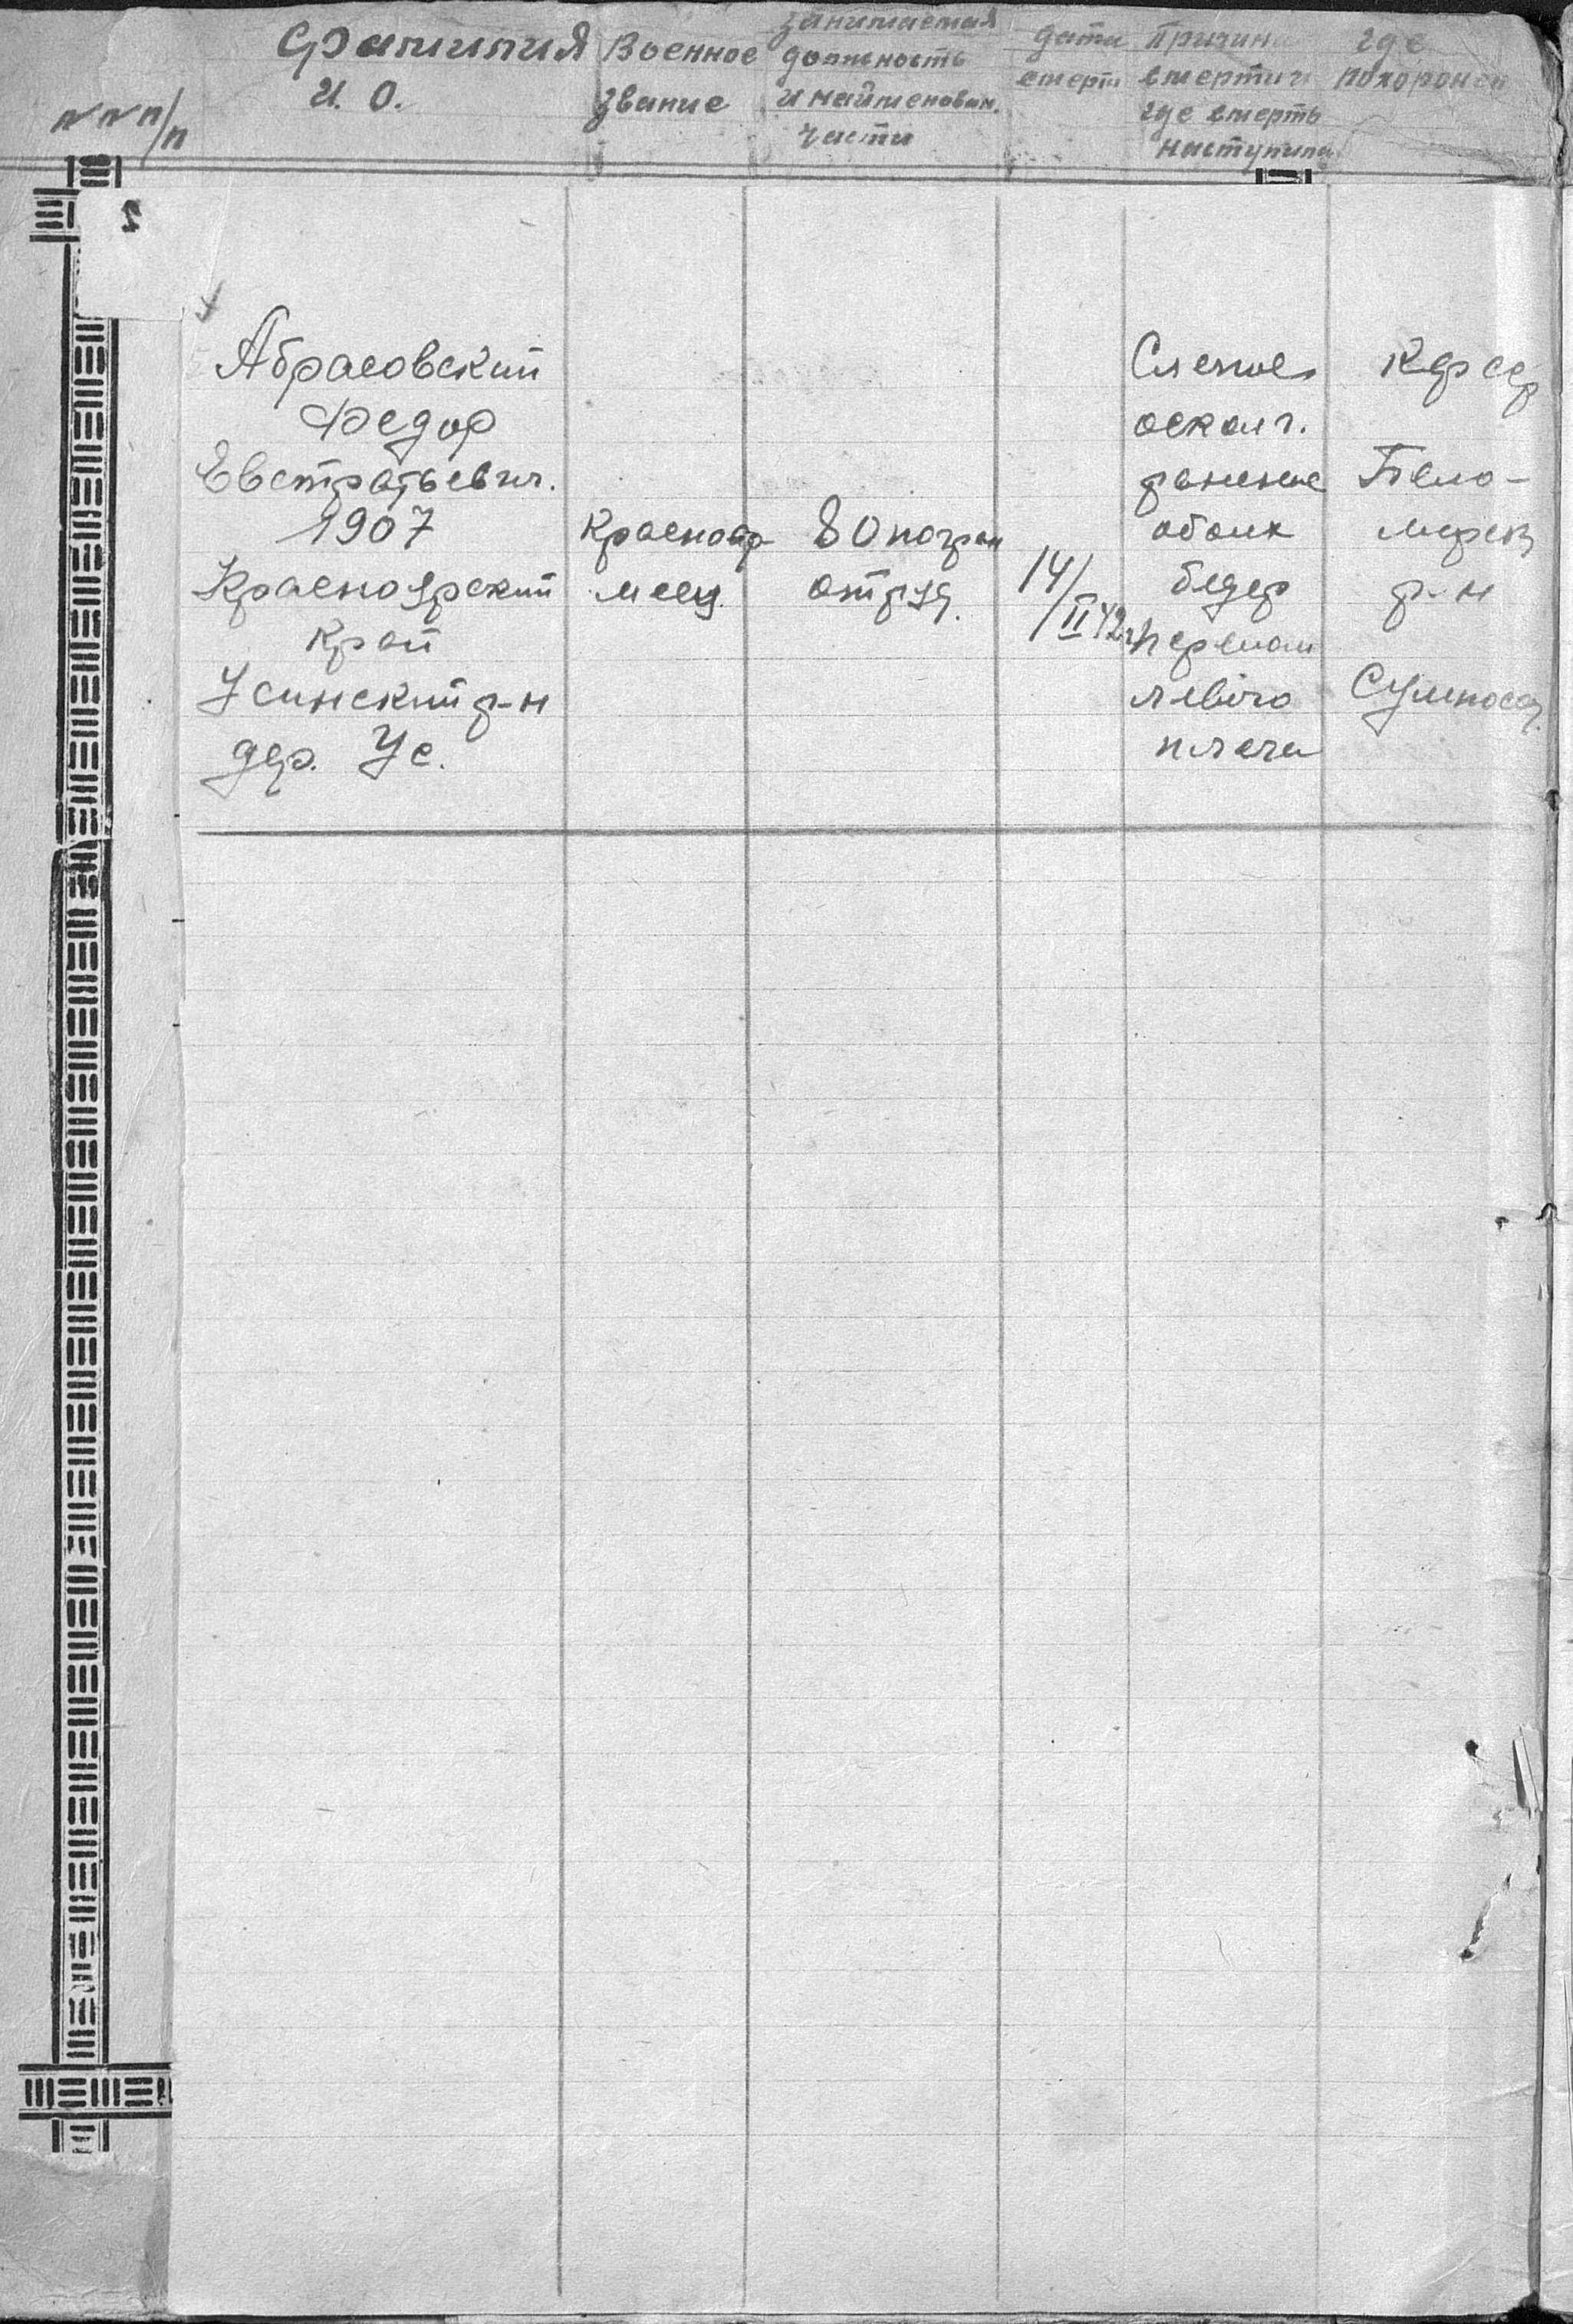 №№ п/п
Фамилия
И. О.
Военное
звание
занимаемая
должность
и наименован.
части
дата
смерти
Причина
смерти и
где смерть
наступила
где
похоронен
Абрасовский
Федор
Евстратьевич.
1907
Красноярский
край
Усинский р-н
дер. Ус.
Красноар
меец
80 погран
отряд.
14/
II 42г
Слепое
оскол.
ранение
обоих
бедер
перелом
левого
плеча
КФССР
Бело-
морск
р-н
Сумпосад